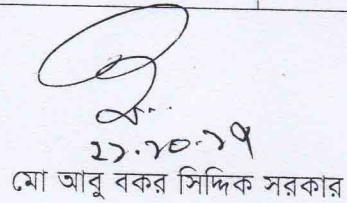 ২১.১০.১৭
মো আবু বকর সিদ্দিক সরকার